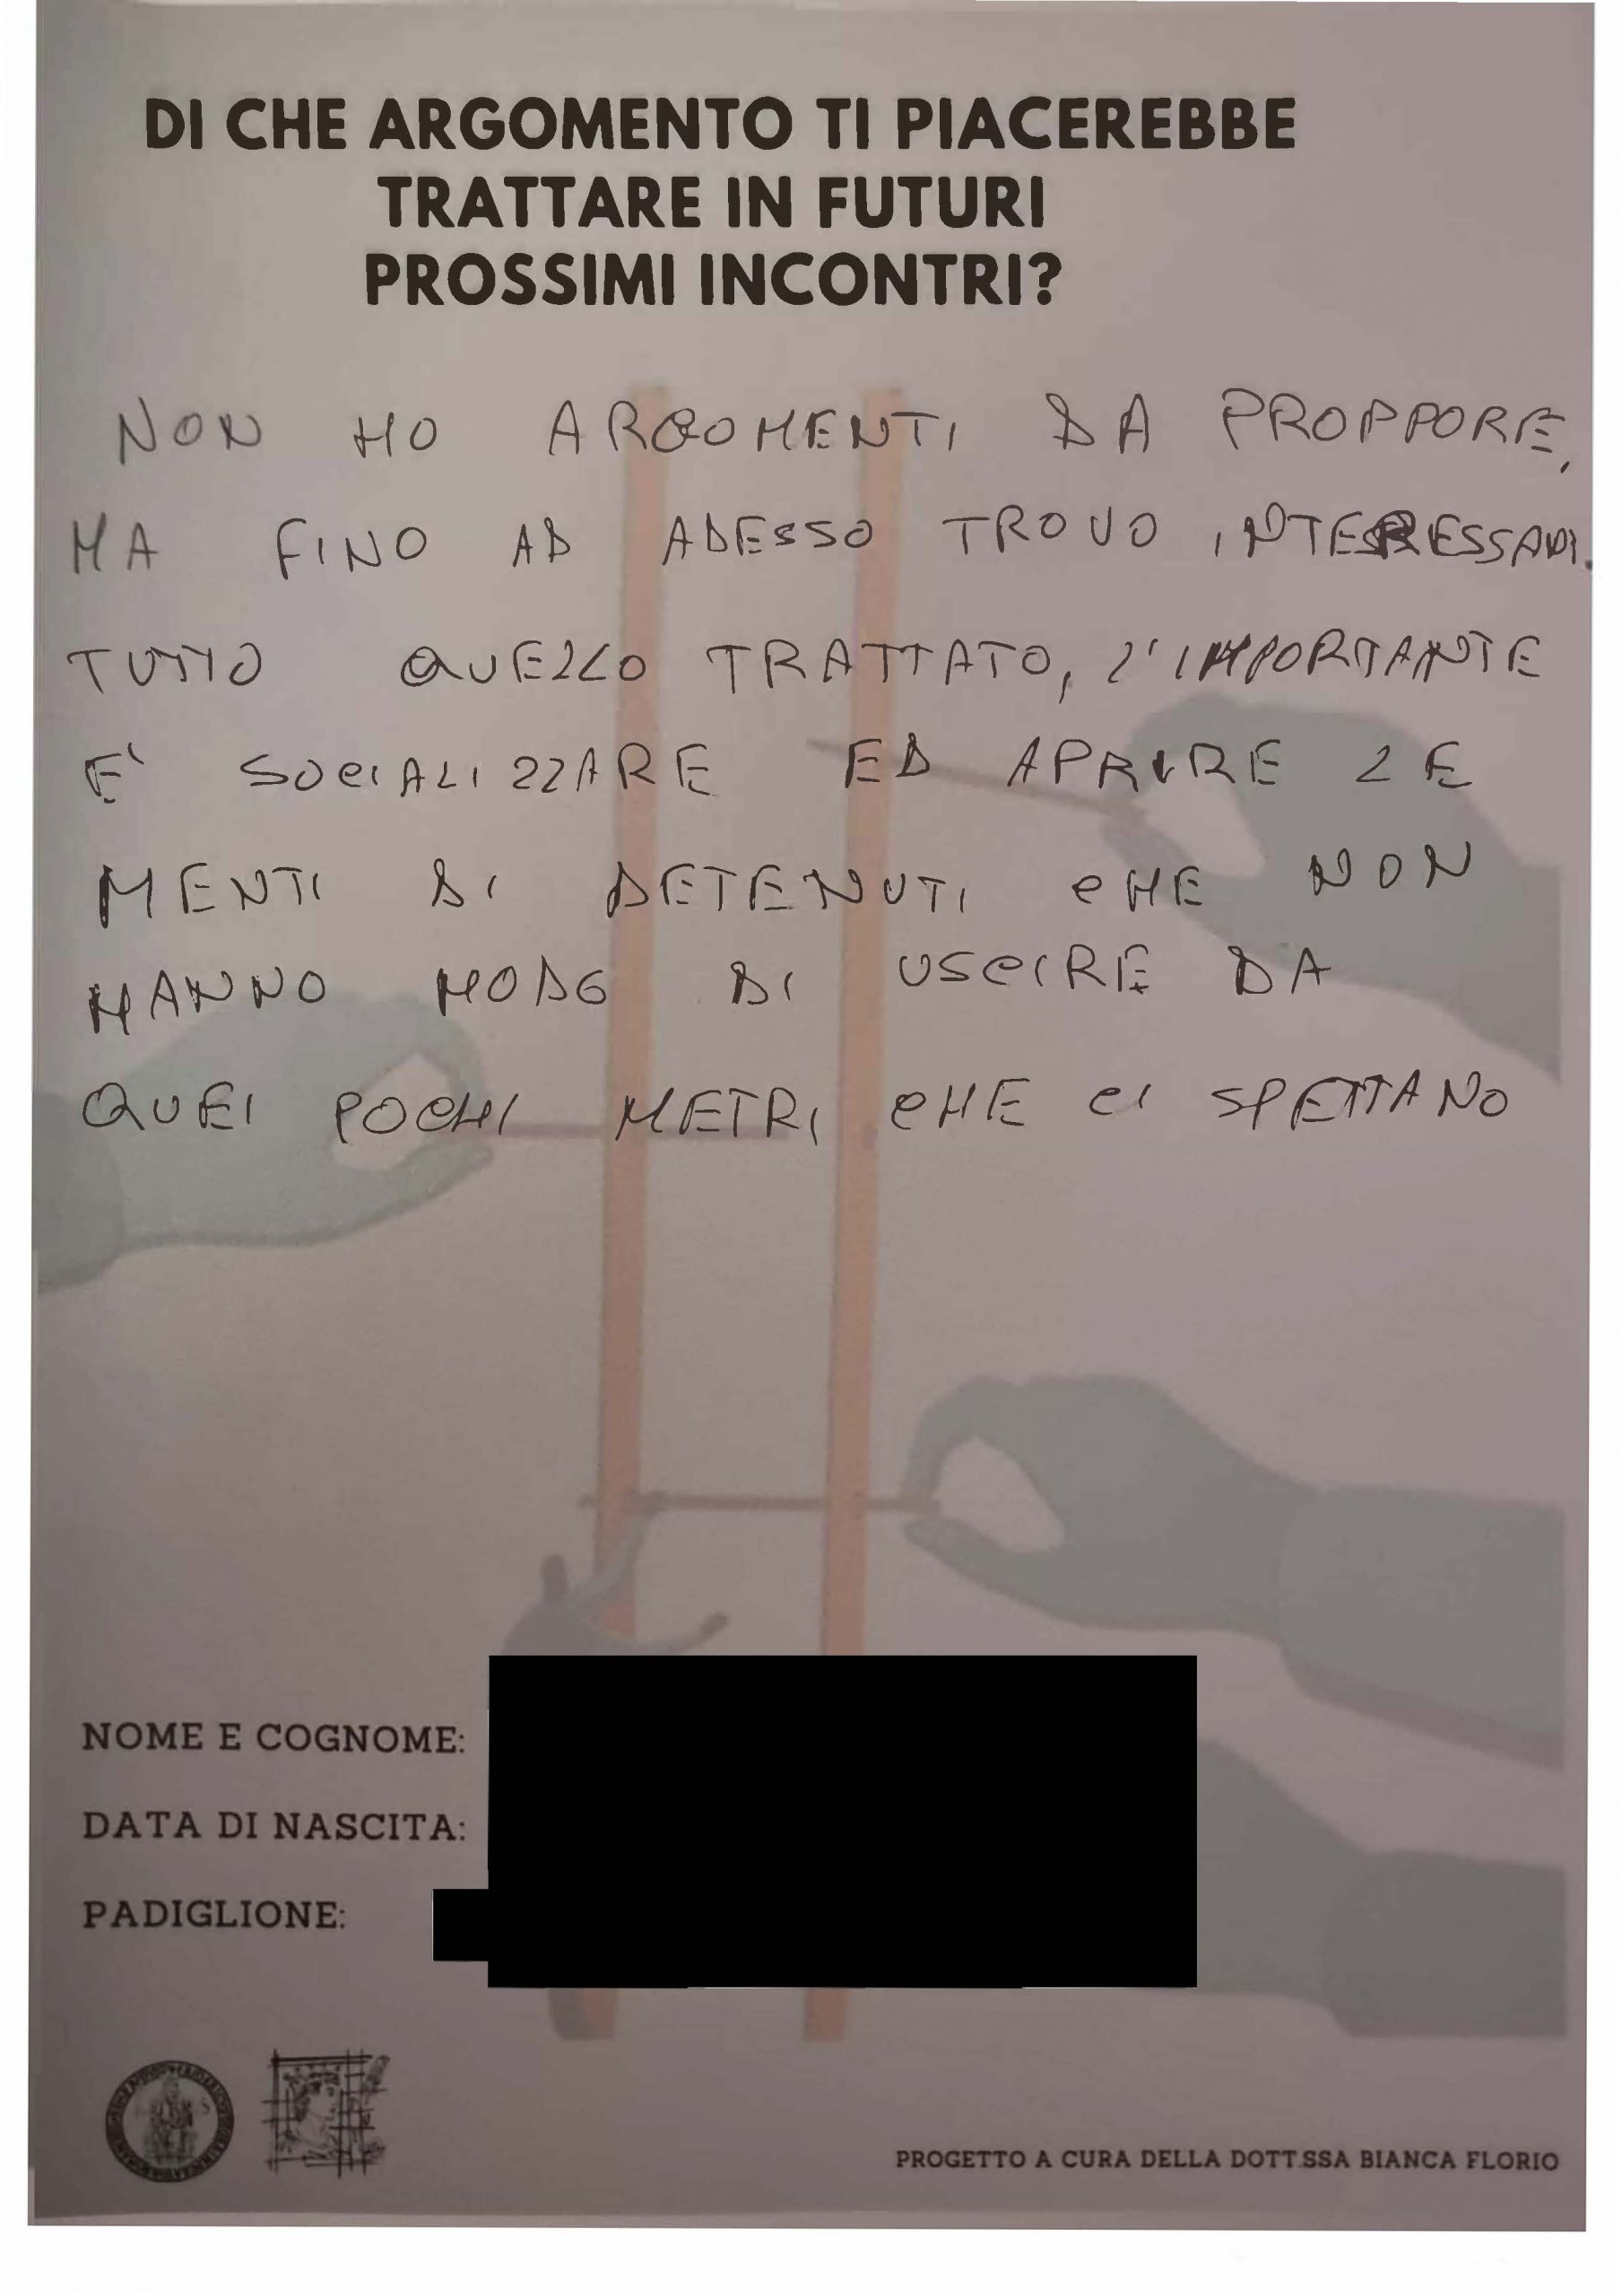 DI CHE ARGOMENTO TI PIACEREBBE
TRATTARE IN FUTURI
PROSSIMI INCONTRI?
NON HO ARGOMENTI DA PROPPORE,
MA FINO AD ADESSO TROVO
TUTTO QUELLO TRATTATO, L'IMPORTANTE
E' SOCIALIZZARE ED APRIRE LE
MENTI DI DETENUTI CHE NON
HANNO MODO DI USCIRE DA
QUEI POCHI METRI CHE CI SPETTANO
NOME E COGNOME:
DATA DI NASCITA:
PADIGLIONE:
PROGETTO A CURA DELLA DOTT.SSA BIANCA FLORIO